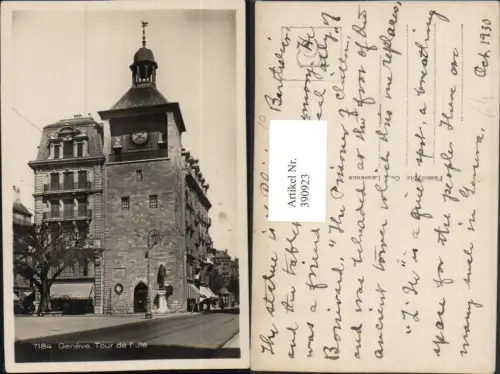 7184 Genève. Tour de l'Ile
Artikel Nr.
390923
The statue is
Berthelier,
and the tablet
memory. He
was a friend
ally of
Bonivard, "The Prisoner of Chillon,"
and was beheaded at the foot of the
ancient tower which this one replaces.
"L'Ile" is a quiet spot, a breathing
space for the people. There are
many such in Geneva.
Oct 1930